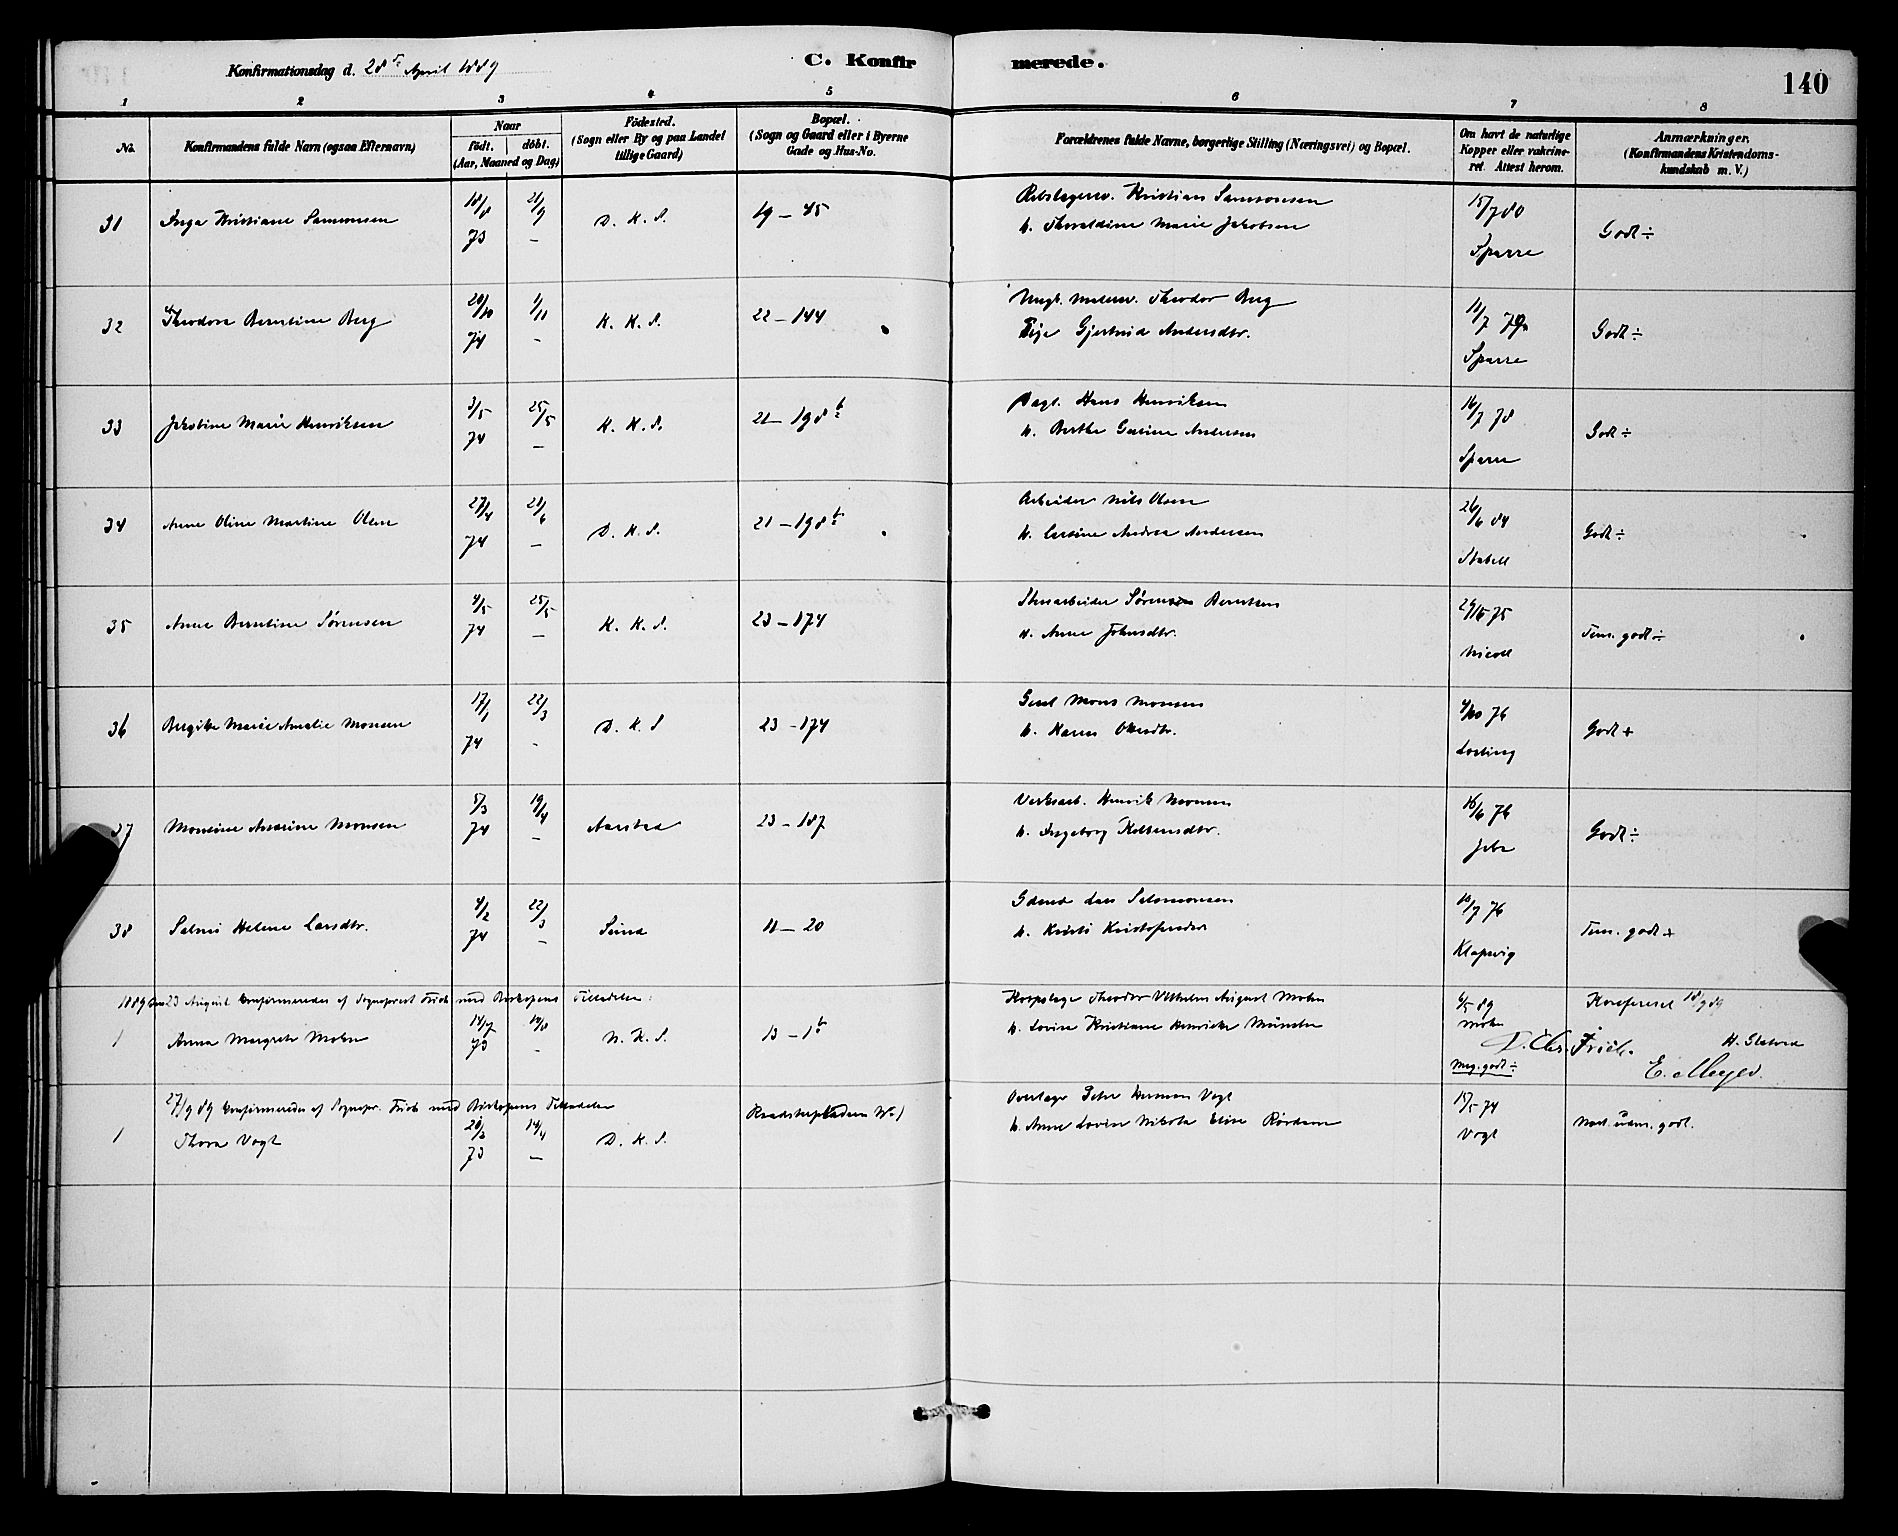 Konfirmationsdag d. 28de April 1889
C. Konfirmerede.
140
1 2 3 4 5 6 7 8
No.
Konfirmandens fulde Navn (ogsaa Efternavn)
Naar
födt. döbt.
(Aar, Maaned og Dag)
Födested.
(Sogn eller By og paa Landet
tillige Gaard)
Bopæl.
(Sogn og Gaard eller i Byerne
Gade og Hus-No.
Forældrenes fulde Navne, borgerlige Stilling (Næringsvei) og Bopæl.
Om havt de naturlige
Kopper eller vakcine-
ret. Attest herom.
Anmærkninger.
(Konfirmandens Kristendoms-
kundskab m. V.)
31 Inga Kristiane Samsonsen 18/8 73 21/9 — D. K. S. 19 – 45 Rebslagersv. Kristian Samsonsen 15/7 80 Godt ÷
h. Thoraldine Marie Jakobsen Sparre
32 Theodora Berntine Berg 20/10 74 1/11 - K. K. S. 22 – 144 Ungk. Malersv. Theodor Berg 11/7 79 Godt ÷
Pige Gjertrud Andersdtr. Sparre
33 Jakobine Marie Henriksen 3/5 74 25/5 — K. K. S. 21 – 198b Dagl. Hans Henriksen 16/7 78 Godt ÷
h. Berthe Andersen Sparre
34 Anne Oline Martine Olsen 27/4 74 21/6 — D. K. S. 21 – 198b Arbeider Nils Olsen 26/6 84 Godt ÷
h. Andrea Andersen Stabell
35 Anne Berntine Sørensen 4/5 74 25/5 — K. K. S. 23 – 174 Stenarbeider Søren Berntsen 75 Tem. godt ÷
h. Anne Johnsdtr. Nicoll
36 Marie Amalie Monsen 17/1 74 22/3 - D. K. S 23 – 174 Mons Monsen 4/10 76 Godt +
h. Karen Lossius
37 Monsine Monsen 5/3 74 19/4 — Aarstad 23 – 187 Verksarb. Henrik Monsen 16/6 76 Godt ÷
h. Ingeborg
38 Salmi Helene Larsdtr. 4/2 74 22/3 — 11 – 20 Lars Salomonsen 10/7 76 Tem. godt +
h. Kristi Kristofersdtr Klapvig
1889 den 23 August konfirmeredes af Sognepræst Frich med Biskopens Tilladelse:
1 Anna Margrete Mohn 14/7 73 10/8 — N. K. S. 13 – 1b Korpslæge Theodor Vilhelm August Mohn 6/5 89 Konfereret 18/9 89
h. Lovise Kristiane Henrikke Münster Mohn
D. Chr. Frich. H.
Meg. godt ÷ E. Meyer.
27/9 89 konfirmeredes af Sognepr. Frich med Biskopens Tilladelse
1 Thora Vogt 20/3 73 14/4 — D. K. S. Raadstupladsen No 1 Overlæge Peter Herman Vogt 15/5 74 Med udm. godt.
h. Anne Lovise Nikola Elise Rørdam Vogt